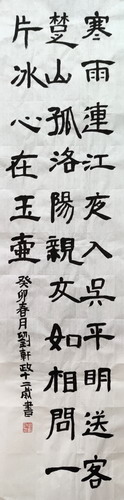 寒雨連江夜入吳平明送客
楚山孤洛陽親友如相問一
片冰心在玉壺
癸卯春月劉軒政十二歲書